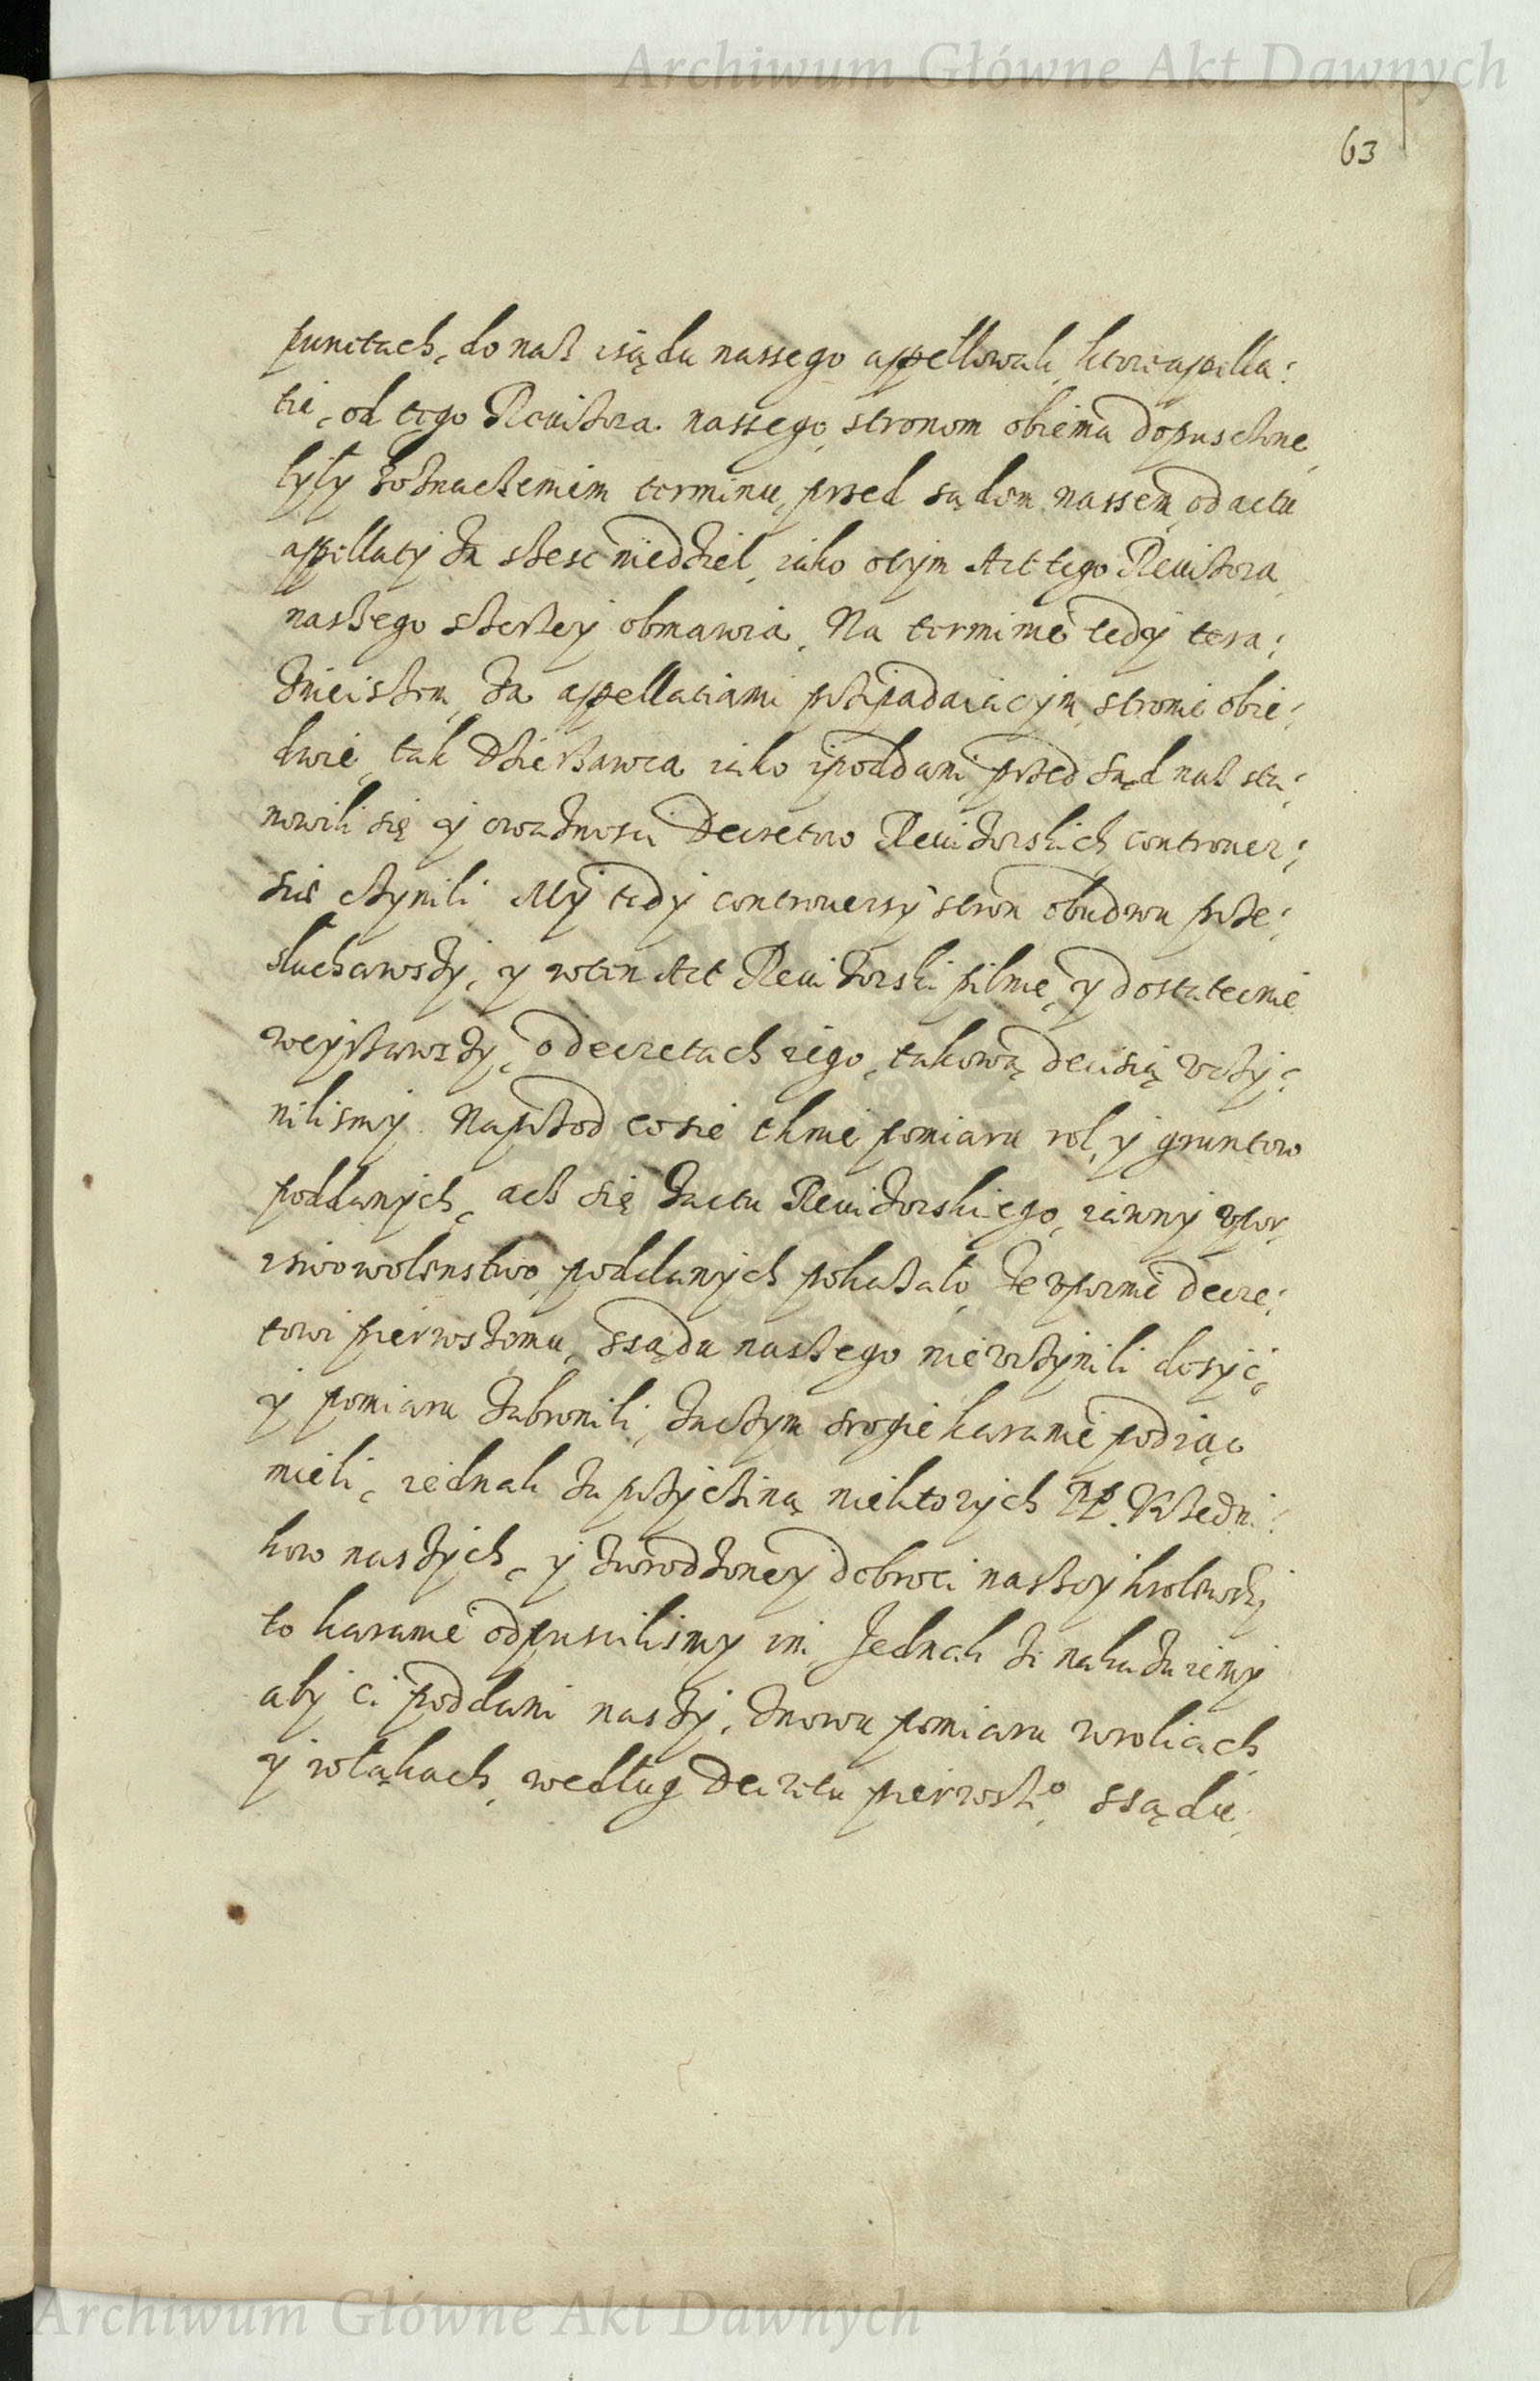 Archiwum Główne Akt Dawnych
63
punctach, do nas z sądu nassego appellowali, ktore apella:
tie, od tego Reuisora nassego, stronom obiema dopusczone
były zoznaczeniem terminu, przed sądem nassem, od actu
appellaty za szesc niedziel, iako otym Act tego Reuisora
naszego szerzey obmawia. Na terminie tedy tera:
znieiszem, za appellatiami przipadaiącym, stronie obie:
dwie, tak Dzierzawca iako ypoddani przed sąd nasz sta:
nowili się y owaznosci Decretow Reuizorskich, controuer:
sie czynili. My tedy controuersy stron obudwu prze:
słuchawszy, y wten Act Reuizorski pilnie, y dostatecnie
weyzrawszy, o decretach iego, takową decisią vczy:
nilismy. Naprzod co sie tknie pomiaru rol, y gruntow
poddanych, acz się zactu Reuizorskiego, iawny vpor,
y swowolenstwo poddanych pokazało, ze vpornie decre:
towi pierwszemu, ssądu naszego nie vczynili dosyć,
y pomiaru zabronili, zaczym srogie karanie podiąc
mieli, iednak za przyczyną niektorych PP. Vrzedni:
kow naszych, y zwrodzoney dobroci naszey krolewskiy
to karanie odpuscilismy im. Jednak ze nakazuiemy
aby ci poddani naszy, znowu pomiaru wroliach
y włąkach, według Decretu pierwszo, ssądu
Archiwum Główne Akt Dawnych